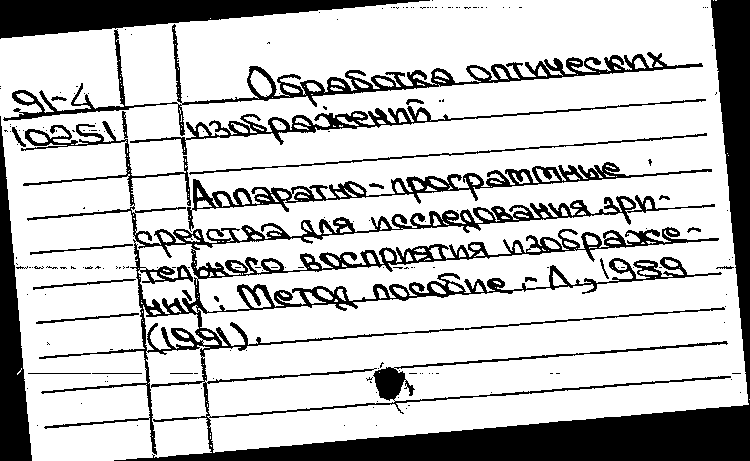 91-4
10251
Обработка оптических
изображений:
Аппаратно-программные
средства для исследования зри-
тельного восприятия изображе-
ний: Метод. пособие.- Л., 1989
(1991).